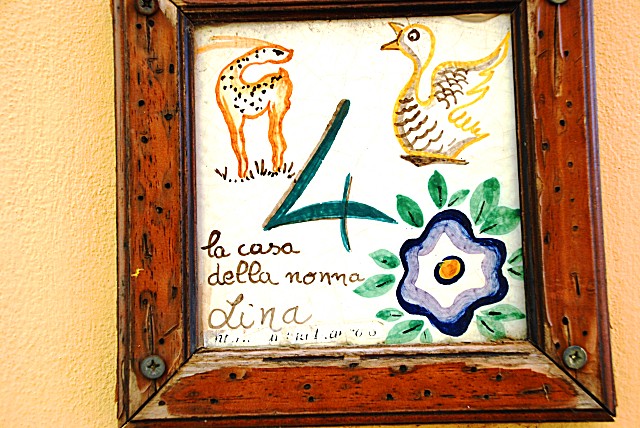 4
la casa
della nonna
Lina